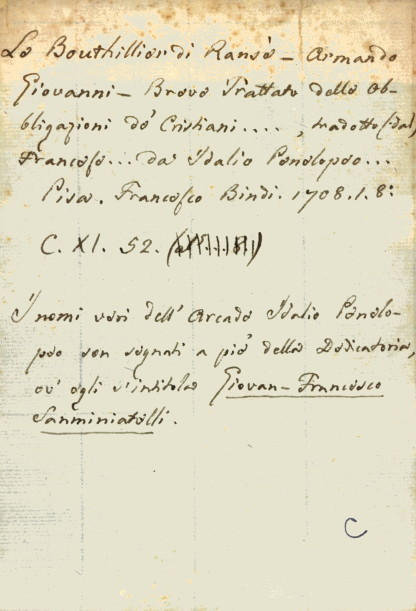 Le Bouthillier di Ransè – Armando
Giovanni – Breve Trattato delle Ob-
bligazioni de' Cristiani...., tradotto (dal
Francese... da Idalio Penelopeo...
Pisa. Francesco Bindi. 1708. 1. 8:
C. XI. 52.
I nomi veri dell' Arcade Idalio Penelo-
peo son segnati a piè della Dedicatoria,
ov' egli s'intitola Giovan-Francesco
Sanminiatelli.
C